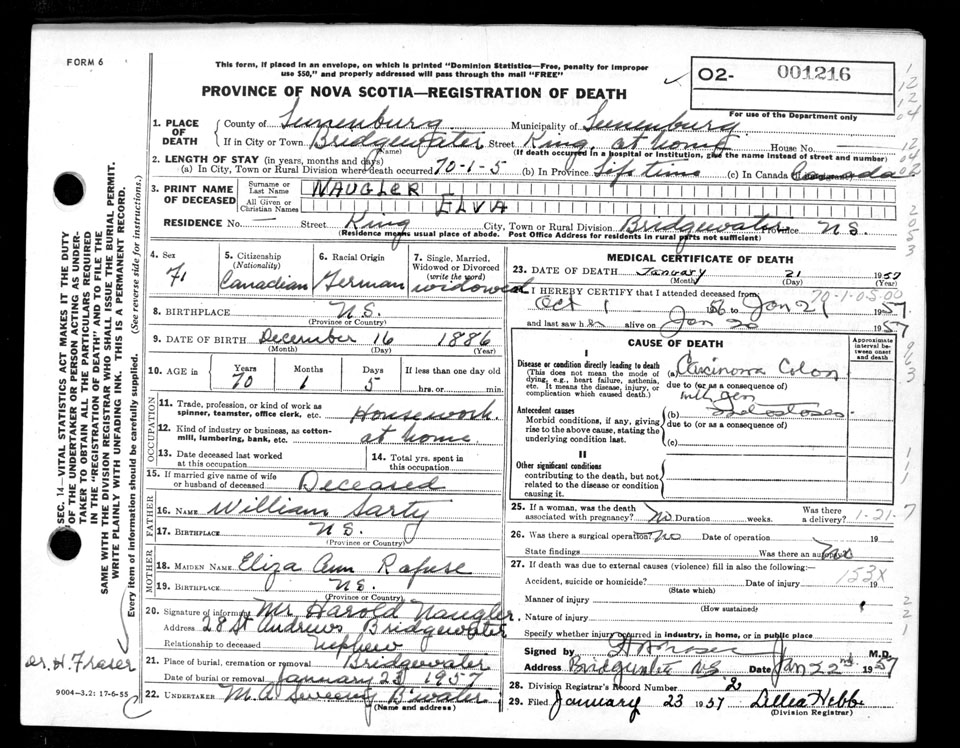 FORM 6
This form, if placed in an envelope, on which is printed "Dominion Statistics—Free, penalty for improper
use $50," and properly addressed will pass through the mail "FREE"
O2- 001216
For use of the Department only
PROVINCE OF NOVA SCOTIA—REGISTRATION OF DEATH
1. PLACE OF DEATH
County of Lunenburg Municipality of Lunenburg
If in City or Town Bridgewater Street King, at home House No. —
(Name) (If death occurred in a hospital or institution, give the name instead of street and number)
2. LENGTH OF STAY (in years, months and days)
(a) In City, Town or Rural Division where death occurred 70-1-5 (b) In Province Life time (c) In Canada Canada
3. PRINT NAME OF DECEASED
Surname or Last Name NAUGLER
All Given or Christian Names ELVA
RESIDENCE No. — Street King City, Town or Rural Division Bridgewater Province N.S.
(Residence means usual place of abode. Post Office Address for residents in rural parts not sufficient)
4. Sex
F.
5. Citizenship (Nationality)
Canadian
6. Racial Origin
German
7. Single, Married, Widowed or Divorced (write the word)
widowed
8. BIRTHPLACE N.S.
(Province or Country)
9. DATE OF BIRTH December 16 1886
(Month) (Day) (Year)
10. AGE Years Months Days If less than one day old
70 1 5 hrs. or min.
OCCUPATION
11. Trade, profession, or kind of work as spinner, teamster, office clerk, etc. Housework
12. Kind of industry or business, as cotton-mill, lumbering, bank, etc. at home
13. Date deceased last worked at this occupation
14. Total yrs. spent in this occupation
15. If married give name of wife or husband of deceased Deceased
FATHER
16. NAME William Sarty
17. BIRTHPLACE N.S.
(Province or Country)
MOTHER
18. MAIDEN NAME Eliza Ann Rafuse
19. BIRTHPLACE N.S.
(Province or Country)
20. Signature of informant Mr. Harold Naugler
Address 28 St Andrews Bridgewater
Relationship to deceased nephew
21. Place of burial, cremation or removal Bridgewater
Date of burial or removal January 23 1957
22. UNDERTAKER M. A Sweeny B'water
(Name and address)
MEDICAL CERTIFICATE OF DEATH
23. DATE OF DEATH January 21 1957
(Month) (Day) (Year)
70-1-05-00
I HEREBY CERTIFY that I attended deceased from
Oct 1 1956 to Jan 21 1957
and last saw her alive on Jan 20 1957
CAUSE OF DEATH
Approximate interval between onset and death
I
Disease or condition directly leading to death
(This does not mean the mode of dying, e.g., heart failure, asthenia, etc. It means the disease, injury, or complication which caused death.)
(a) Carcinoma Colon
due to (or as a consequence of)
with gen
Antecedent causes
Morbid conditions, if any, giving rise to the above cause, stating the underlying condition last.
(b)
due to (or as a consequence of)
(c)
II
Other significant conditions
contributing to the death, but not related to the disease or condition causing it.
25. If a woman, was the death associated with pregnancy? No Duration weeks. Was there a delivery? 1-21-7
26. Was there a surgical operation? No Date of operation 19
State findings Was there an autopsy?
27. If death was due to external causes (violence) fill in also the following:
153X
Accident, suicide or homicide? Date of injury 19
(State which)
Manner of injury
(How sustained)
Nature of injury
Specify whether injury occurred in industry, in home, or in public place
Signed by H A Fraser M.D.
Address Bridgewater N.S. Date Jan 22nd 1957
28. Division Registrar's Record Number 2
29. Filed January 23 1957 Lillea Hebb
(Division Registrar)
SEC. 14—VITAL STATISTICS ACT MAKES IT THE DUTY
OF THE UNDERTAKER OR PERSON ACTING AS UNDER-
TAKER TO OBTAIN ALL THE PARTICULARS REQUIRED
IN THE "REGISTRATION OF DEATH" AND TO FILE THE
SAME WITH THE DIVISION REGISTRAR WHO SHALL ISSUE THE BURIAL PERMIT.
WRITE PLAINLY WITH UNFADING INK. THIS IS A PERMANENT RECORD.
Every item of information should be carefully supplied. (See reverse side for instructions.)
Dr. H. Fraser
9004—3.2: 17-6-55